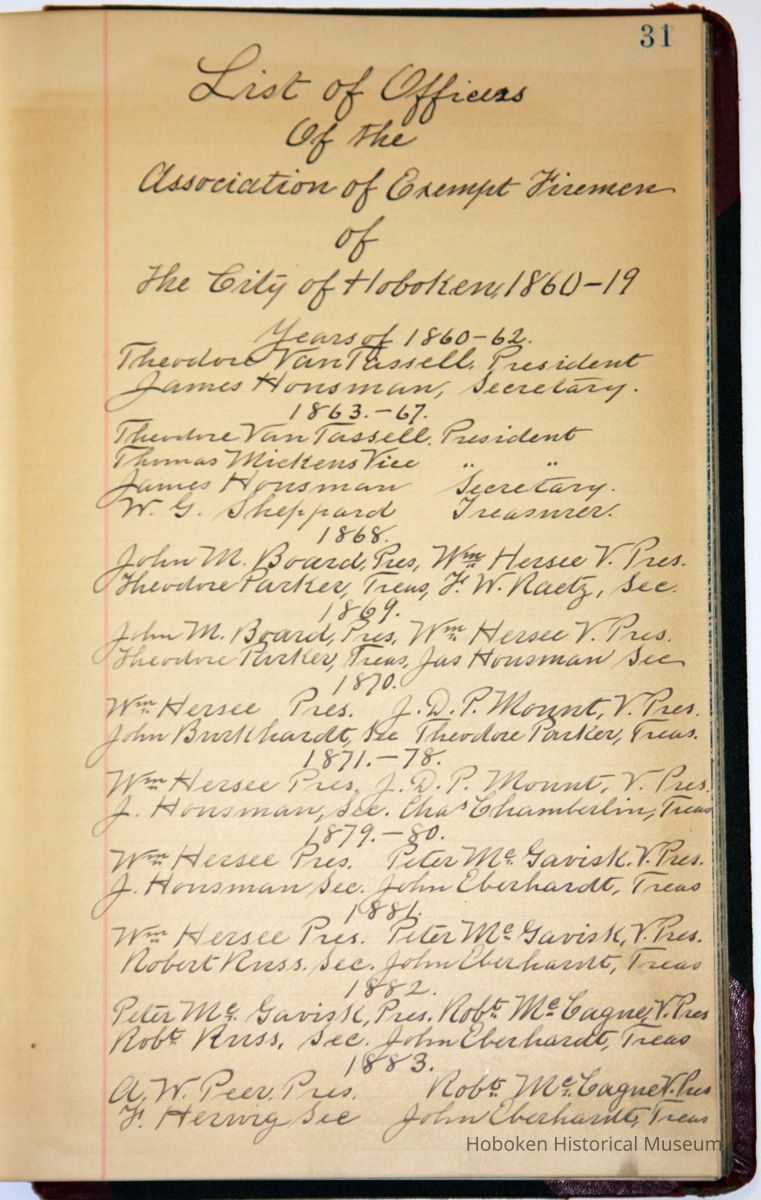 31
List of Officers
Of the
Association of Exempt Firemen
of
The City of Hoboken, 1860-19
Years of 1860-62.
Theodore Van Tassell, President
James Honsman, Secretary.
1863.-67.
Theodore Van Tassell. President
Thomas Mickens Vice " "
James Honsman Secretary.
W. G. Sheppard Treasurer.
1868.
John M. Board, Pres, Wm Hersee V. Pres.
Theodore Parker, Treas, F. W. Raetz, Sec.
1869.
John M. Board, Pres, Wm Hersee V. Pres.
Theodore Parker, Treas, Jas Honsman Sec
1870.
Wm Hersee Pres. J. D. P. Mount, V. Pres.
John Burkhardt, Sec Theodore Parker, Treas.
1871.-78.
Wm Hersee Pres. J. D. P. Mount, V. Pres.
J. Honsman, Sec. Chas Chamberlin, Treas
1879.-80.
Wm Hersee Pres. Peter Mc. Gavisk. V. Pres.
J. Honsman Sec. John Eberhardt, Treas
1881.
Wm Hersee Pres. Peter Mc. Gavisk, V. Pres.
Robert Russ. Sec. John Eberhardt, Treas
1882.
Peter Mc. Gavisk, Pres. Robt. Mc. Cague, V. Pres
Robt Russ. Sec. John Eberhardt, Treas
1883.
A. W. Peer. Pres. Robt. Mc. Cague V. Pres
F. Herwig Sec John Eberhardt, Treas
Hoboken Historical Museum